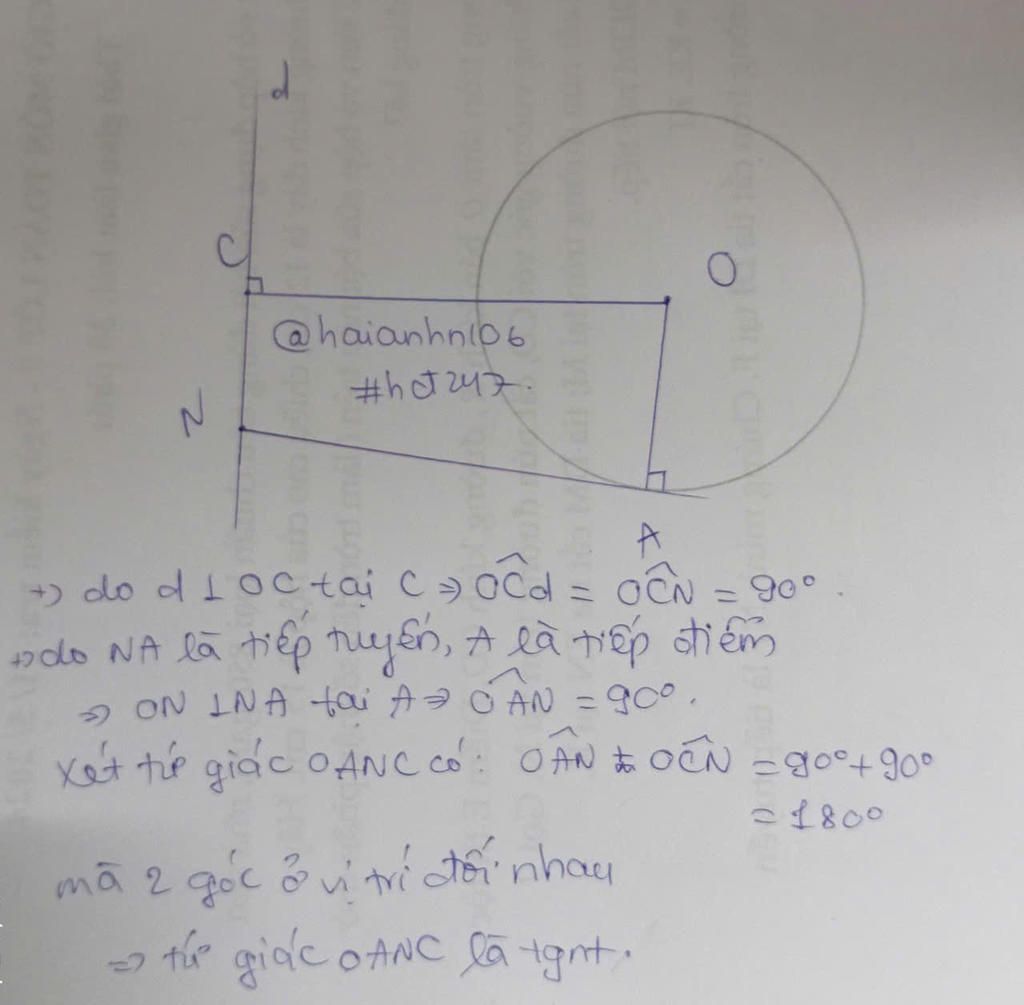 d
C
O
@haianhn106
#hđ247.
N
A
+) do d ⊥ OC tại C ⇒ OĈd = OĈN = 90°.
+) do NA là tiếp tuyến, A là tiếp điểm
⇒ ON ⊥ NA tại A ⇒ OÂN = 90°.
Xét tứ giác OANC có: OÂN + OĈN = 90° + 90°
= 180°
mà 2 góc ở vị trí đối nhau
⇒ tứ giác OANC là tgnt.